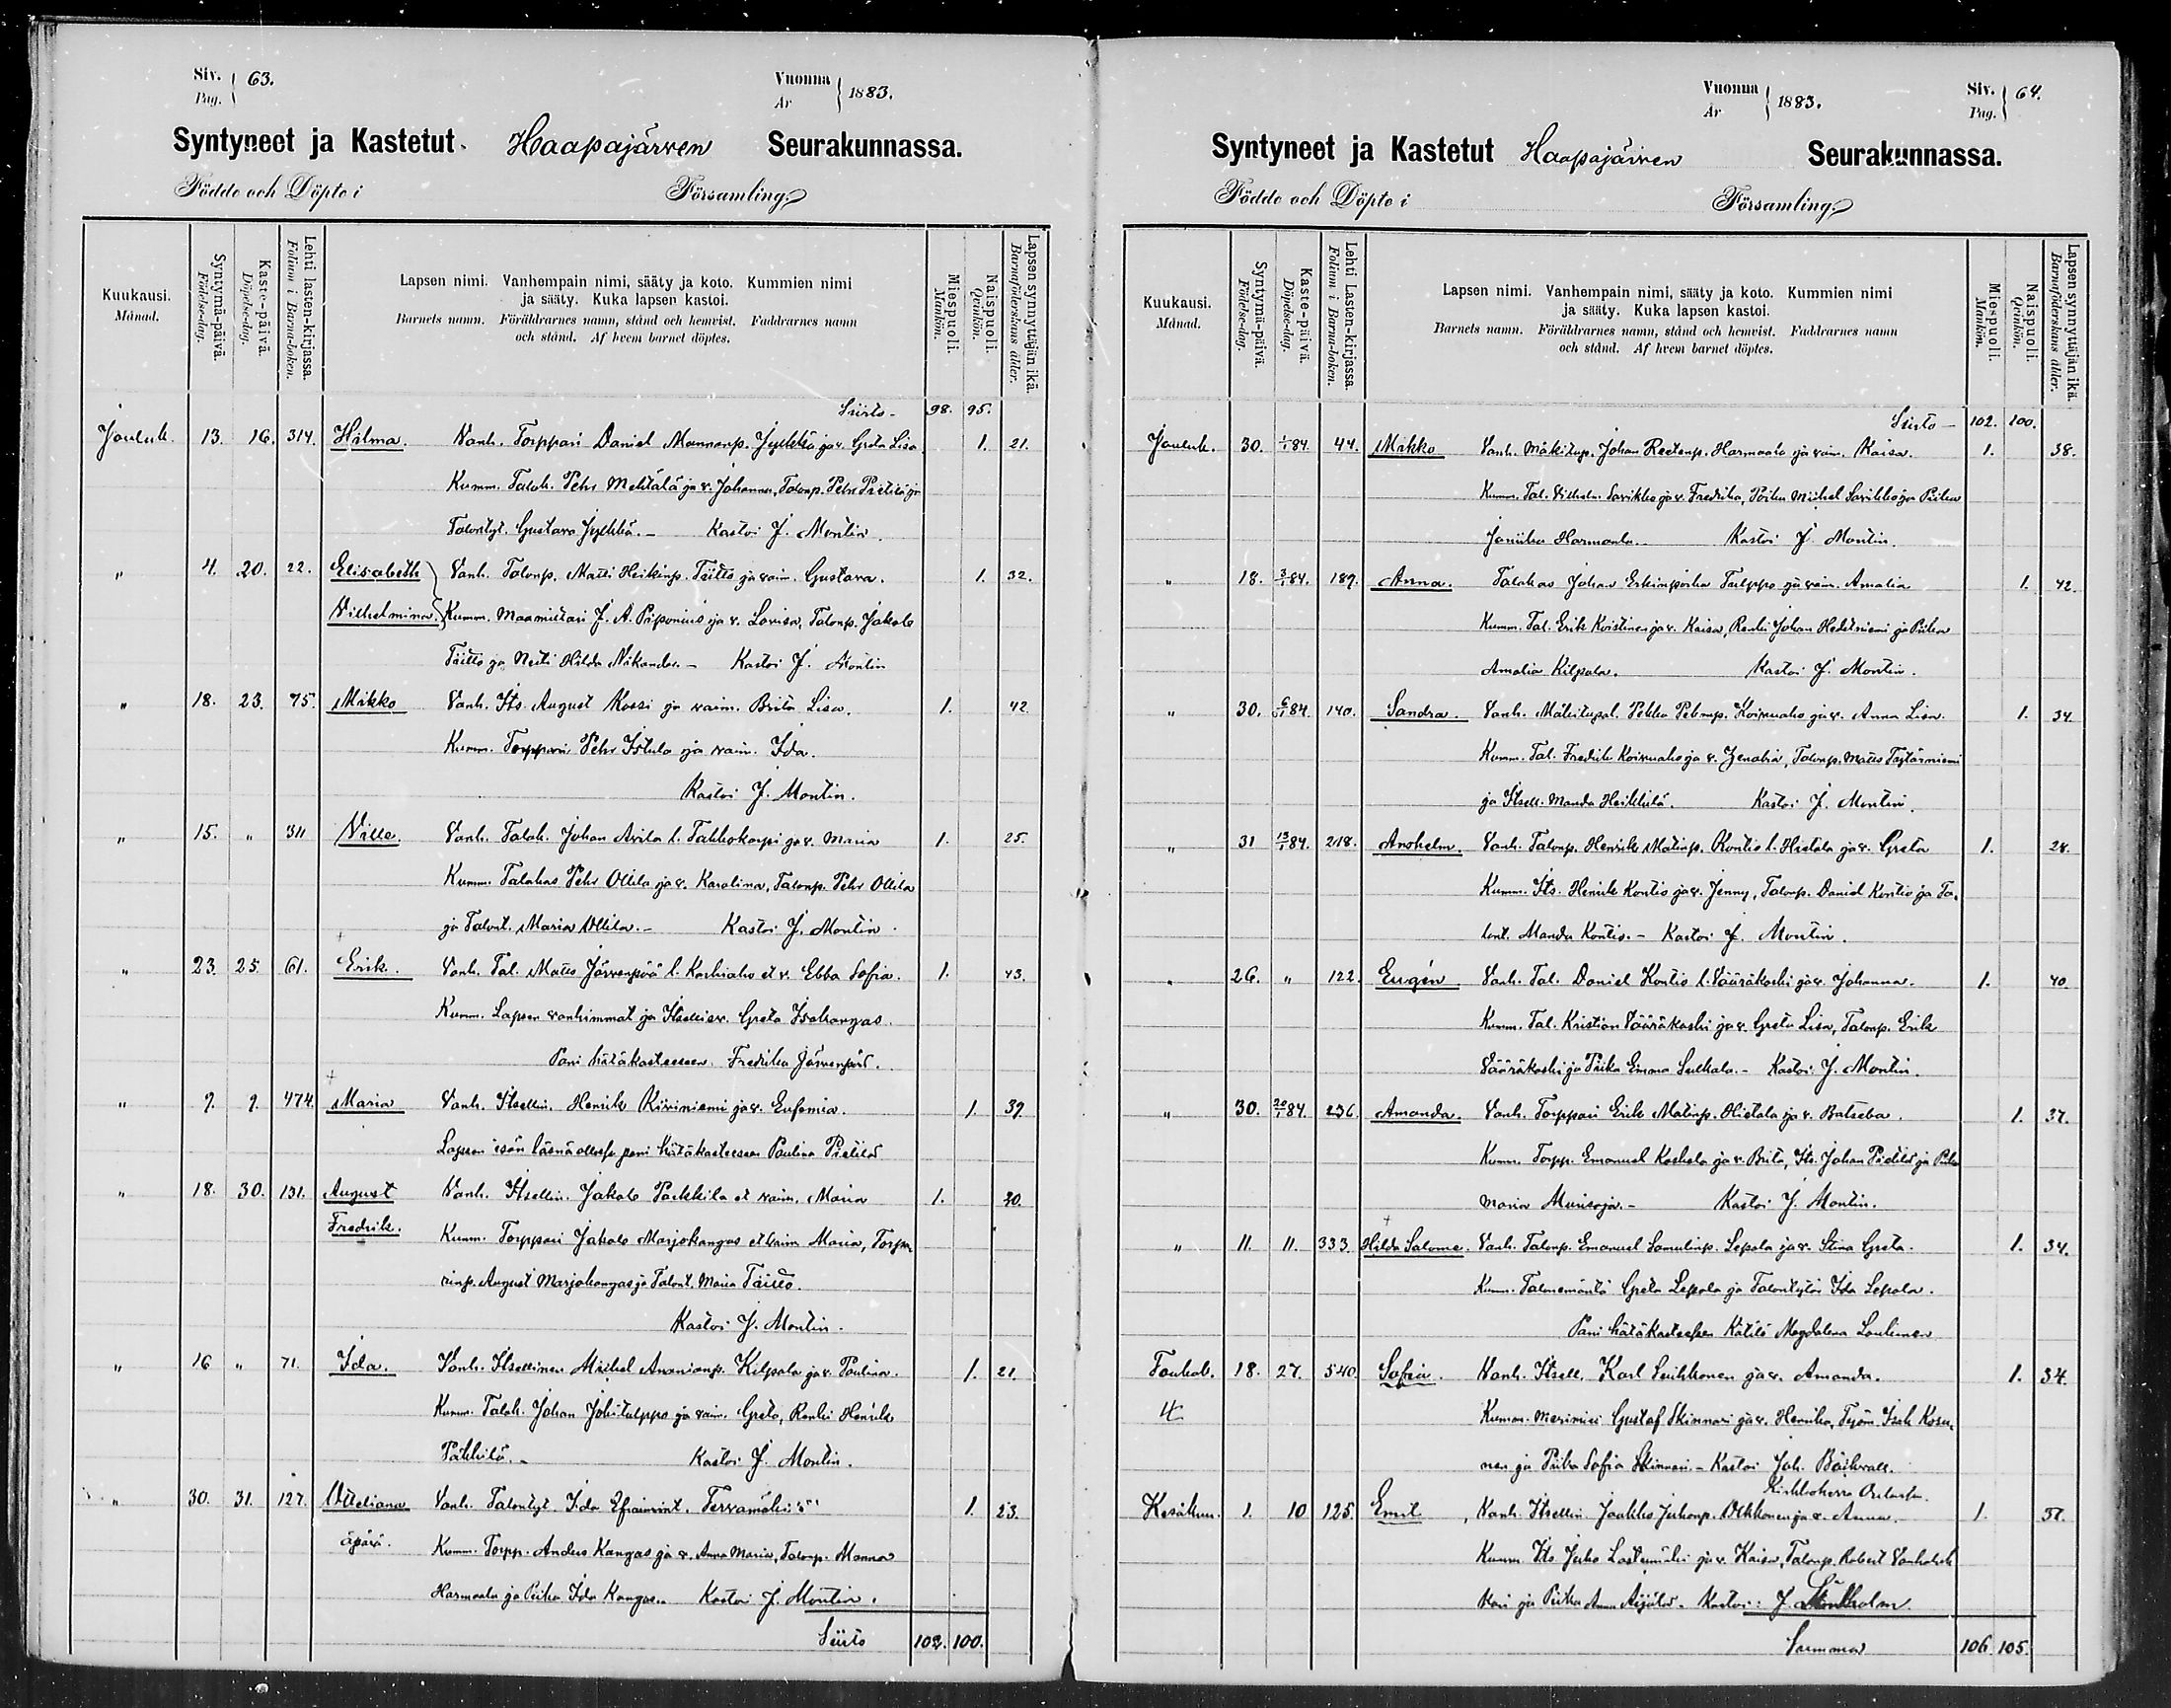 Siv. Pag. 63.
Vuonna År 1883.
Syntyneet ja Kastetut Haapajärven Seurakunnassa.
Födde och Döpte i Församling.
Kuukausi. Månad.
Syntymä-päivä. Födelse-dag.
Kaste-päivä. Döpelse-dag.
Lehti lasten-kirjassa. Folium i Barna-boken.
Lapsen nimi. Vanhempain nimi, sääty ja koto. Kummien nimi
ja sääty. Kuka lapsen kastoi.
Barnets namn. Föräldrarnes namn, stånd och hemvist. Faddrarnes namn
och stånd. Af hvem barnet döptes.
Miespuoli. Mankön.
Naispuoli. Qvinkön.
Lapsen synnyttäjän ikä. Barnaföderskans ålder.
Siirto - 98. 95.
Jouluk. 13. 16. 314. Hilma. Vanh. Torppari Daniel Mannonp. Jyrkkä ja v. Greta Lisa 1. 21.
Kumm. Taloh. Pehr Mehtälä ja v. Johanna, Talonp. Pehr Pietilä ja
Talontyt. Gustava Jyrkkä. - Kastoi J. Montin.
" 4. 20. 22. Elisabeth Vanh. Talonp. Matti Heikinp. Täitto ja vaim. Gustava. 1. 32.
Vilhelmina. Kumm. Maamittari J. A. Piponius ja v. Lovisa, Talonp. Jakob
Täitto ja Neiti Hilda Nikander. - Kastoi J. Montin
" 18. 23. 75. Mikko Vanh. Its. August Kossi ja vaim. Brita Lisa. 1. 42.
Kumm. Torppari Pehr Istula ja vaim. Ida.
Kastoi J. Montin.
" 15. " 311 Ville. Vanh. Taloh. Johan Avila l. Tahkokorpi ja v. Maria 1. 25.
Kumm. Talokas Pehr Ollila ja v. Karolina, Talonp. Pehr Ollila
ja Talont. Maria Ollila. - Kastoi J. Montin.
" 23. 25. 61. Erik. Vanh. Tal. Matts Järvenpää l. Karhiaho et v. Ebba Sofia. 1. 43.
Kumm. Lapsen vanhimmat ja Itsellisv. Greta Isohangas.
Pani hätäkasteeseen Fredrika Järvenpää.
" 9. 9. 474. Maria Vanh. Itsellin. Henrik Kiviniemi ja v. Eufemia. 1. 39.
Lapsen isän läsnä ollessa pani hätäkasteeseen Paulina Pietilä
" 18. 30. 131. August Vanh. Itsellin. Jakob Parkkila et vaim. Maria 1. 20.
Fredrik. Kumm. Torppari Jakob Marjokangas et vaim Maria, Torppa-
rinp. August Marjokangas ja Talont. Maria Täitto.
Kastoi J. Montin.
" 16 " 71. Ida. Vanh. Itsellinen Michel Ananianp. Kilpala ja v. Paulina. 1. 21.
Kumm. Taloh. Johan Jokitulppo ja vaim. Greta, Renki Henrik
Pakkila. - Kastoi J. Montin.
" 30. 31. 127. Otteliana Vanh. Talontyt. Ida Efraimint. Tervamäki 1. 23.
äpärä. Kumm. Torpp. Anders Kangas ja v. Anna Maria, Talonp. Manna
Harmaala ja Piika Ida Kangas. Kastoi J. Montin.
Siirto 102. 100.
Vuonna År 1883.
Siv. Pag. 64.
Syntyneet ja Kastetut Haapajärven Seurakunnassa.
Födde och Döpte i Församling.
Kuukausi. Månad.
Syntymä-päivä. Födelse-dag.
Kaste-päivä. Döpelse-dag.
Lehti Lasten-kirjassa. Folium i Barna-boken.
Lapsen nimi. Vanhempain nimi, sääty ja koto. Kummien nimi
ja sääty. Kuka lapsen kastoi.
Barnets namn. Föräldrarnes namn, stånd och hemvist. Faddrarnes namn
och stånd. Af hvem barnet döptes.
Miespuoli. Mankön.
Naispuoli. Qvinkön.
Lapsen synnyttäjän ikä. Barnaföderskans ålder.
Siirto - 102. 100.
Jouluk. 30. 1/1 84. 44. Mikko Vanh. Mäkitup. Johan Reetonp. Harmaala ja vaim. Kaisa. 1. 38.
Kumm. Tal. Vilhelm Savikko ja v. Fredrika, Poika Michel Savikko ja Piika
Janika Harmaala. Kastoi J. Montin.
" 18. 3/1 84. 189. Anna. Talokas Johan Erkinpoika Tulppo ja vaim. Amalia 1. 42.
Kumm. Tal. Erik Koistinen ja v. Kaisa, Renki Johan Hedetniemi ja Piika
Amalia Kilpala. Kastoi J. Montin.
" 30. 6/1 84. 140. Sandra. Vanh. Mäkitupal. Pekka Pekanp. Koivuaho ja v. Anna Lisa. 1. 34.
Kumm. Tal. Fredrik Koivuaho ja v. Zenobia, Talonp. Matts Täytärniemi
ja Itsell. Manda Heikkilä. Kastoi J. Montin.
" 31 13/1 84. 218. Anshelm. Vanh. Talonp. Henrik Matinp. Kontio l. Hietala ja v. Greta 1. 24.
Kumm. Its. Henrik Kontio ja v. Jenny, Talonp. Daniel Kontio ja Ta-
lont. Manda Kontio. - Kastoi J. Montin.
" 26. " 122. Eugén Vanh. Tal. Daniel Kontio l. Vääräkoski ja v. Johanna. 1. 40.
Kumm. Tal. Kristian Vääräkoski ja v. Greta Lisa, Talonp. Erik
Vääräkoski ja Piika Emma Sulkala. - Kastoi J. Montin.
" 30. 20/1 84. 236. Amanda. Vanh. Torppari Erik Matinp. Hietala ja v. Batseba. 1. 37.
Kumm. Torpp. Emanuel Koskela ja v. Brita, Its. Johan Pietilä ja Piika
Maria Murisoja. - Kastoi J. Montin.
" 11. 11. 333. Hilda Salome. Vanh. Talonp. Emanuel Samulinp. Lepola ja v. Stina Greta. 1. 34.
Kumm. Talonemäntä Greta Lepola ja Talontytär Ida Lepola.
Pani hätäkasteesen Kätilö Magdalena Louhinen
Toukok. 18. 27. 540. Sofia. Vanh. Itsell. Karl Leikkonen ja v. Amanda. 1. 34.
Kumm. Merimies Gustaf Skinnari ja v. Henrika, Työm. Isak Kosu-
nen ja Piika Sofia Skinnari. - Kastoi Joh. Bäckvall.
Kirkkoherra Oulussa.
Kesäkuu. 1. 10 125. Emil Vanh. Itsellin. Jaakko Juhonp. Olkkonen ja v. Anna. 1. 37.
Kumm. Its. Juho Lastumäki ja v. Kaisa, Talonp. Robert
ja Piika Anna Äijälä. Kastoi: J.
Summa 106. 105.